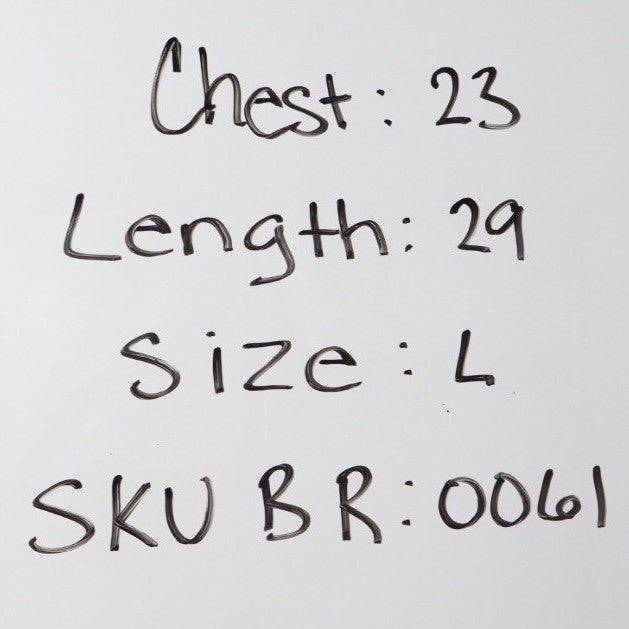 Chest: 23
Length: 29
Size: L
SKU BR:0061